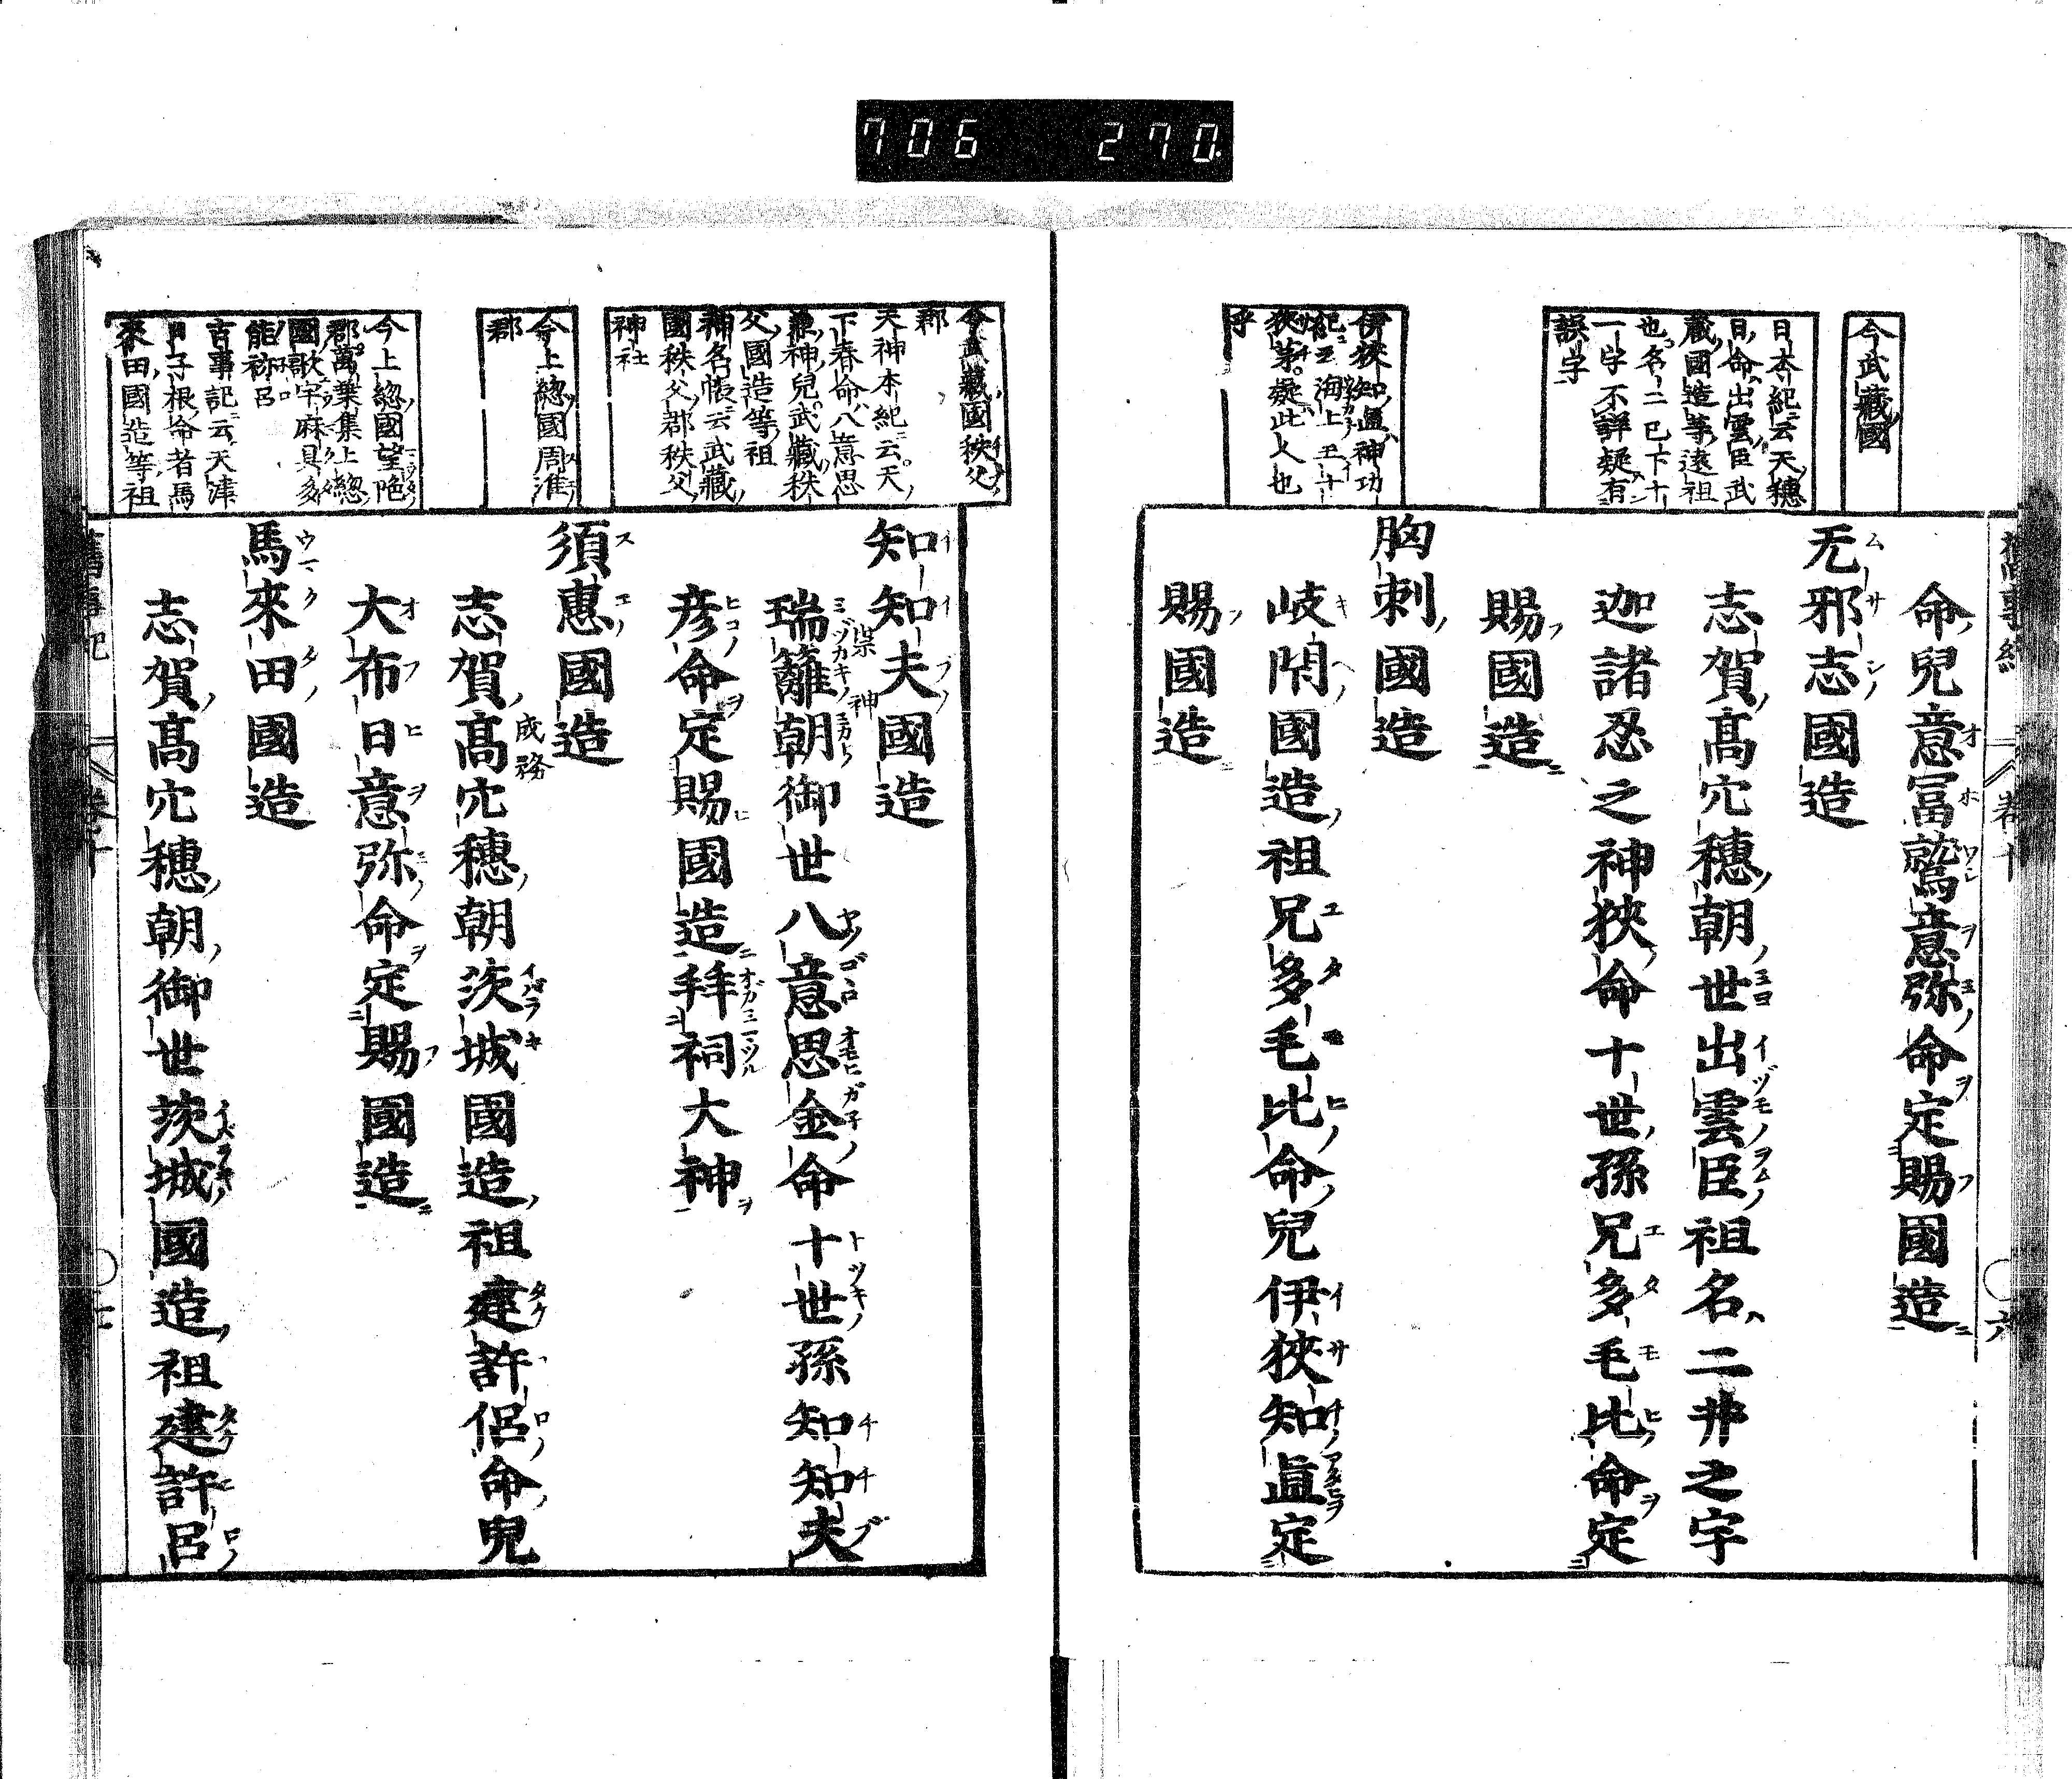 706 270
今武藏國
日本紀云天穗
日命出雲臣武
藏國造等遠祖
也名二已下十
一字不詳疑有
誤字
伊狹知直神功
紀云海上五十
狹茅疑此人也
乎
命兒意冨鷲意弥命定賜國造
无邪志國造
志賀髙穴穗朝世出雲臣祖名二井之宇
迦諸忍之神狹命十世孫兄多毛比命定
賜國造
胸刺國造
岐閇國造祖兄多毛比命兒伊狹知直定
賜國造
今武藏國秩父
郡
天神本紀云天
下春命八意思
兼神兒武藏秩
父國造等祖
神名帳云武藏
國秩父郡秩父
神社
今上緫國周淮
郡
今上緫國望陁
郡萬葉集上緫
國歌宇麻具多
能祢呂
古事記云天津
日子根命者馬
來田國造等祖
知知夫國造
瑞籬朝御世八意思金命十世孫知知夫
崇神
彦命定賜國造拜祠大神
須惠國造
志賀髙穴穗朝茨城國造祖建許侶命兒
成務
大布日意弥命定賜國造
馬來田國造
志賀髙穴穗朝御世茨城國造祖建許呂